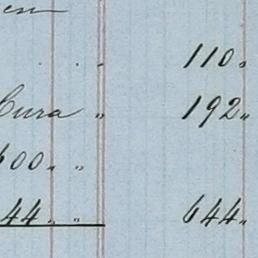 110 "
Cura " 192 "
600 " "
44 " " 644 "